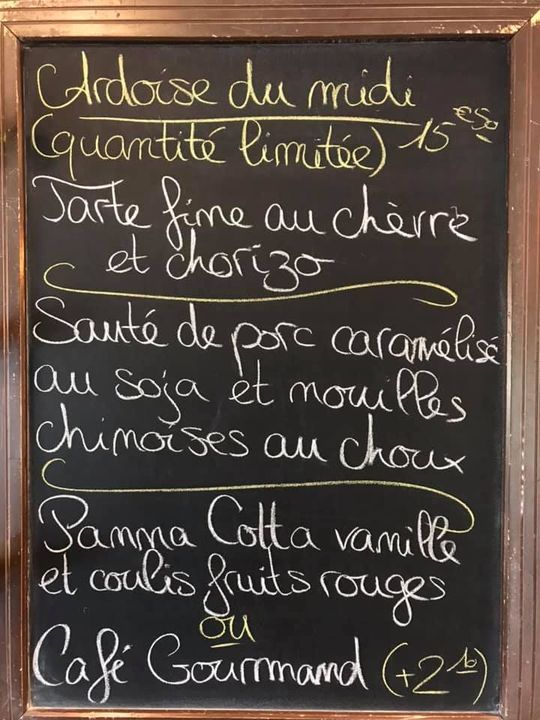 Ardoise du midi
(quantité limitée) 15 €50
Tarte fine au chèvre
et chorizo
Sauté de porc caramélisé
au soja et nouilles
chinoises au choux
Panna Cotta vanille
et coulis fruits rouges
ou
Café Gourmand (+2